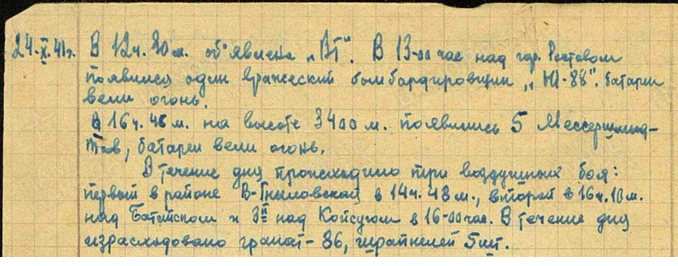 24.X.41г. В 12ч. 20м. объявлена „ВТ“. В 13-00 час над гор. Ростовом
появился один вражеский бомбардировщик „Ю-88“. Батареи
вели огонь.
В 16ч. 48м. на высоте 3400 м. появились 5 Мессершмид-
тов, батареи вели огонь.
В течение дня происходило три воздушных боя:
первый в районе В-Гниловская в 14ч. 48м., второй в 16ч. 10м.
над Батайском и 3й над Койсугом в 16-00 час. В течение дня
израсходовано гранат - 86, шрапнелей 5 шт.